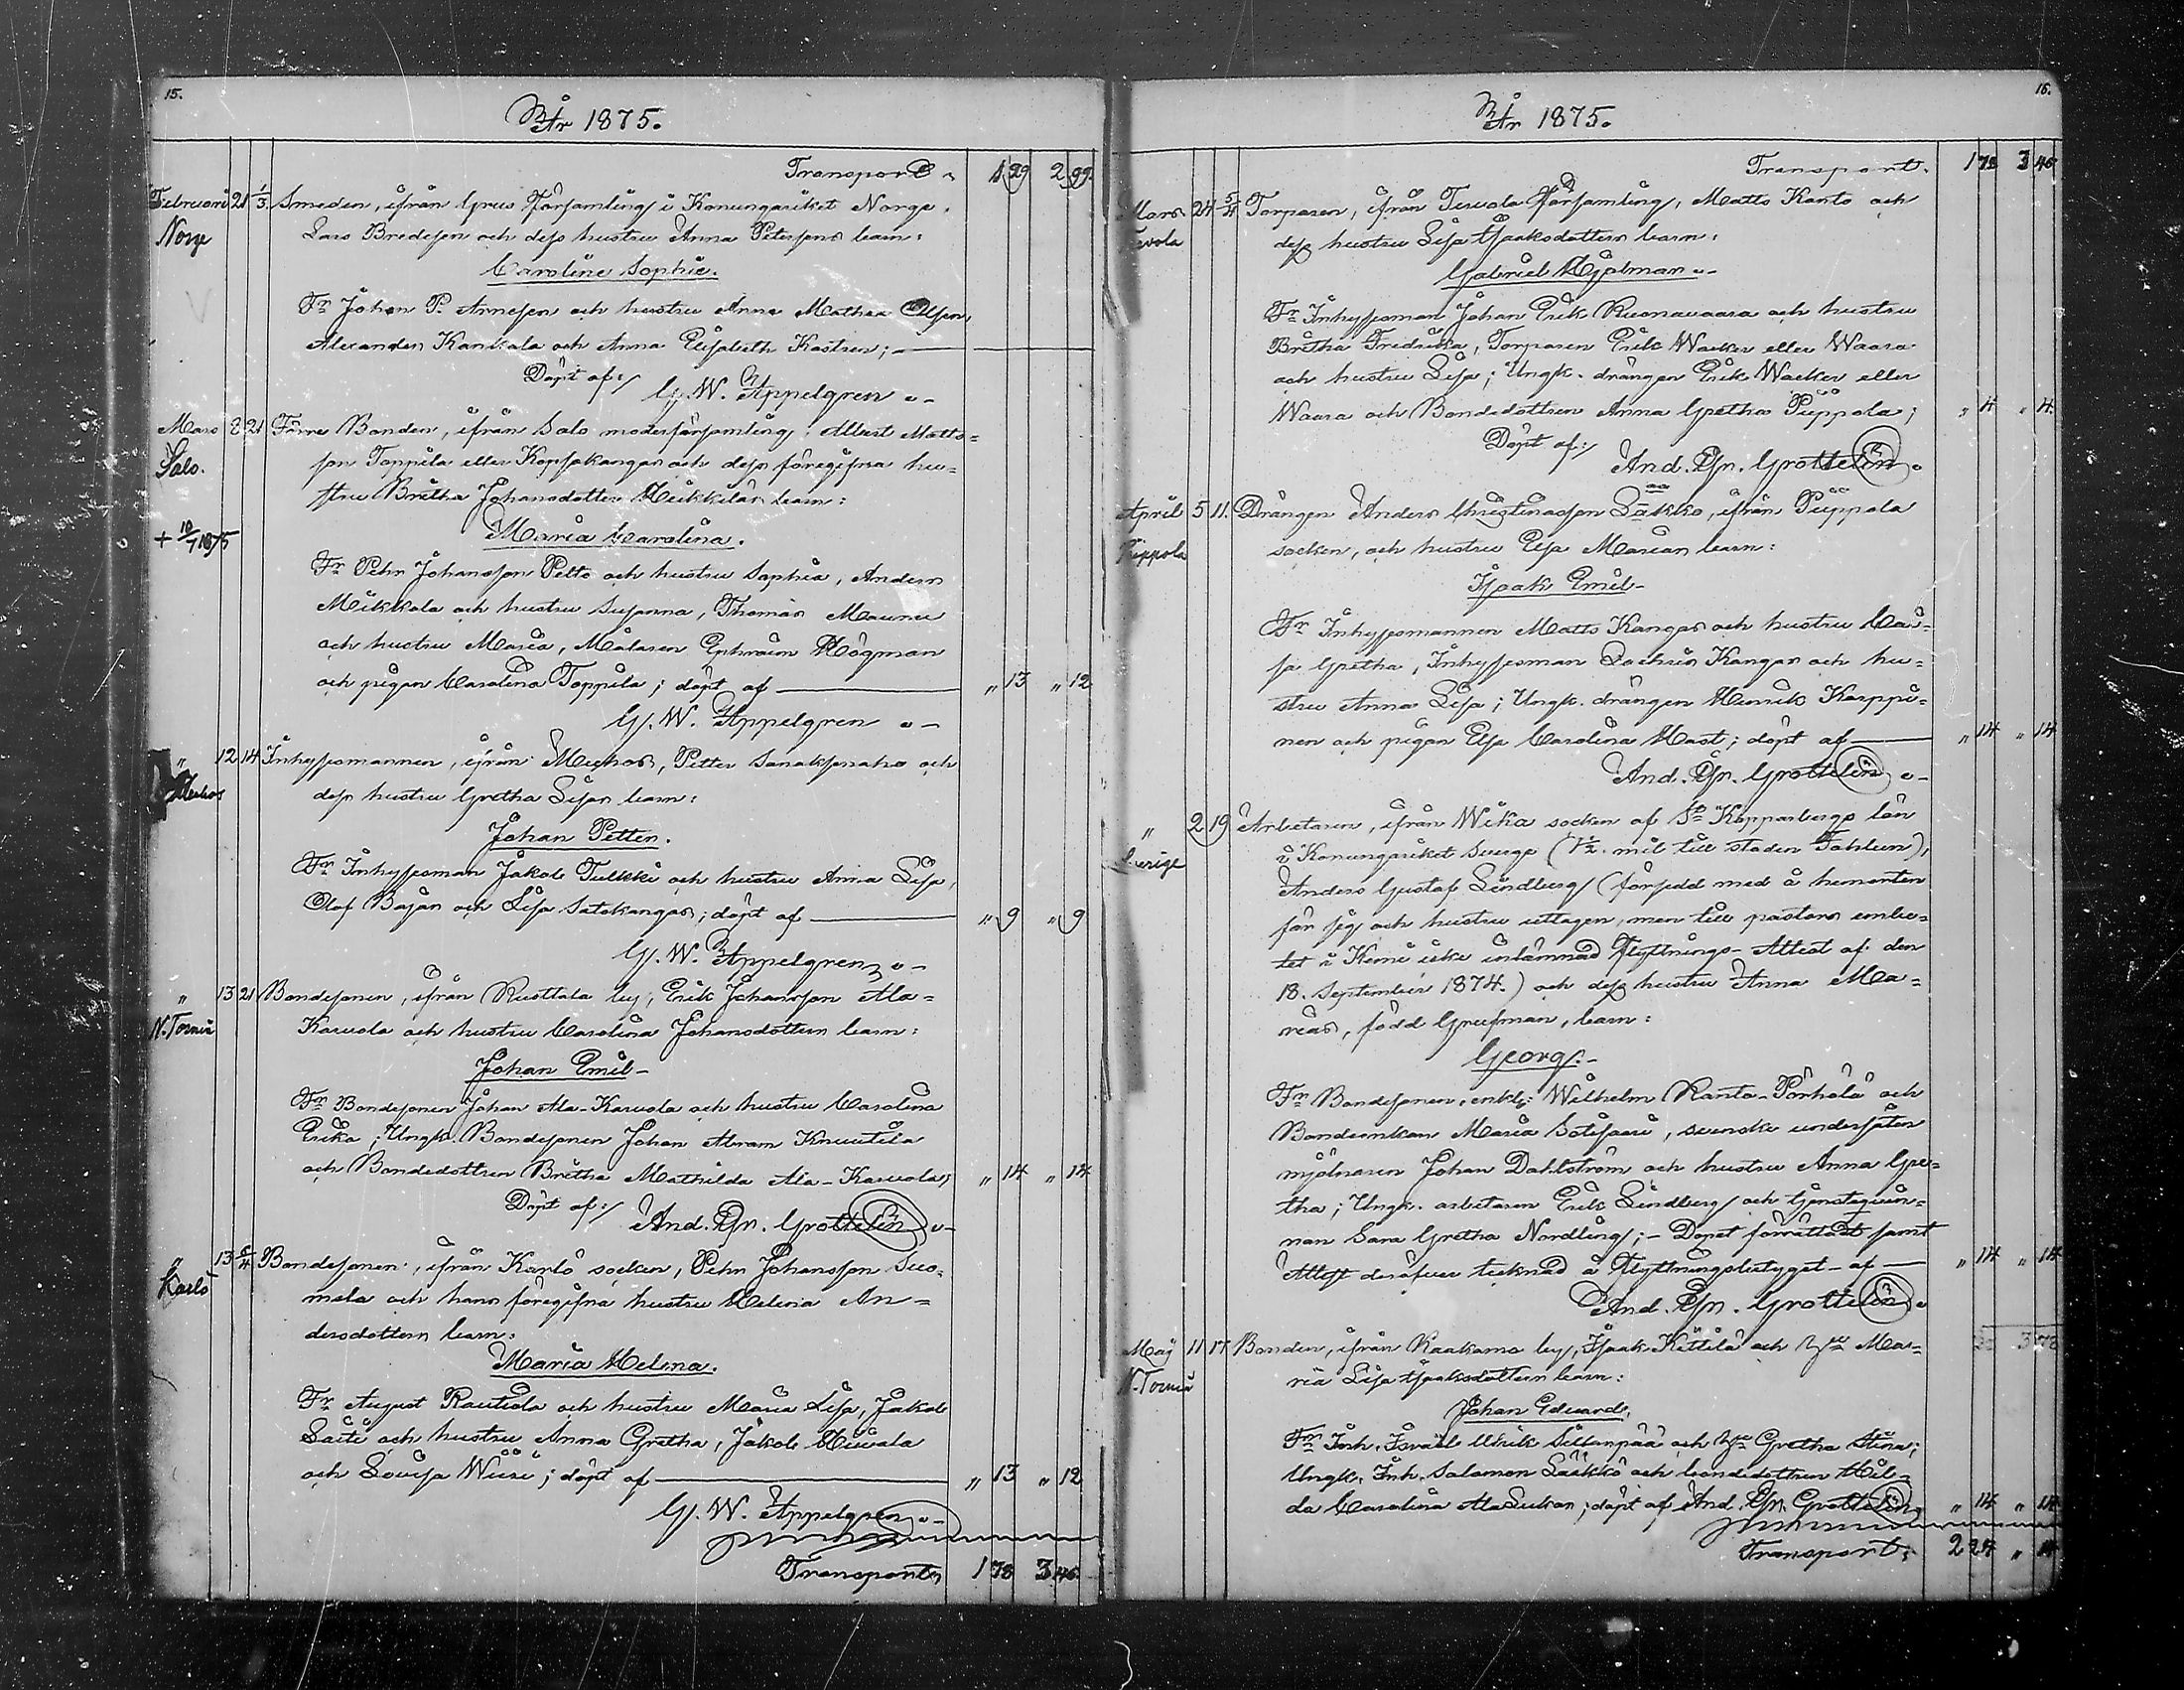 15.
År 1875.
Transport. 1 29 2 99.
Februari 21 1/3. Smeden, ifrån Grus Församling i Konungariket Norge,
Norge Lars Bredesen och dess hustru Anna Petersens barn:
Caroline Sophie.
Fr Johan P. Arnesen och hustru Anna Mathea Olsen,
Alexander Kankala och Anna Elisabeth Kastren;
Döpt af:/ G. W. Appelgren
Mars 8 21 Förre Bonden, ifrån Salo moderförsamling: Albert Matts-
Salo. son Toppila eller Kopsakangas och dess föregifna hu-
stru Britha Johansdotter Heikkiläs barn:
+ 10/7 1875 Maria Carolina.
Fr Pehr Johansson Pelto och hustru Sophia, Anders
Mikkola och hustru Susanna, Thomas Maunu
och hustru Maria, Målaren Ephraim Högman
och pigan Carolina Toppila; döpt af " 13 " 12
G. W. Appelgren
" 12 14 Inhysesmannen, ifrån Muhos, Petter Sanaksenaho och
Muhos dess hustru Gretha Lisas barn:
Johan Petter.
Fr Inhysesman Jakob Tulkki och hustru Anna Lisa,
Olof Bajan och Lisa Satokangas; döpt af " 9 " 9
G. W. Appelgren
" 13 21 Bondesonen, ifrån Ruottala by, Erik Johansson Ala-
N. Torneå Karuola och hustru Carolina Johansdotters barn:
Johan Emil
Fr Bondesonen Johan Ala-Karuola och hustru Carolina
Erika; Ungk. Bondesonen Johan Abram Knuutila
och Bondedottren Britha Mathilda Ala-Karuola; " 14 " 14
Döpt af:/ And. Joh. Grottelin
" 13 5/4 Bondesonen, ifrån Karlö socken, Pehr Johansson Suo-
Karlö mela och hans föregifna hustru Helena An-
dersdotters barn:
Maria Helena.
Fr August Rautiola och hustru Maria Lisa, Jakob
Laiti och hustru Anna Gretha, Jakob Hiivala
och Lovisa Wiiri; döpt af " 13 " 12
G. W. Appelgren
Transport 1 78 3 46
16.
År 1875.
Transport. 1 78 3 46
Mars 24 5/4 Torparen, ifrån Tervola Församling, Matts Kanto och
Tervola dess hustru Lisa Isaksdotters barn:
Gabriel Hjalmar
Fr Inhysesman Johan Erik Ruonavaara och hustru
Britha Fredrika, Torparen Erik Wacker eller Waara
och hustru Lisa; Ungk. drängen Erik Wacker eller
Waara och Bondedottren Anna Gretha Piippola; " 4 " 4
Döpt af:/ And. Joh. Grottelin
April 5 11. Drängen Anders Christinasson Läkkö, ifrån Piippola
Piippola socken, och hustru Elsa Marias barn:
Isaak Emil
Fr Inhysesmannen Matts Kangas och hustru Cai-
sa Gretha, Inhysesman Zachris Kangas och hu-
stru Anna Lisa; Ungk. drängen Henrik Karppi-
nen och pigan Elsa Carolina Hast; döpt af " 14 " 14
And. Joh. Grottelin
" 2 19 Arbetaren, ifrån Wika socken af St Kopparbergs län
Sverige i Konungariket Sverge (1/2 mil till staden Fahlun),
Anders Gustaf Lindberg (försedd med å hemorten
för sig och hustru uttagen, men till pastors embe-
tet i Kemi icke inlämnad Flyttnings-Attest af den
18. September 1874.) och dess hustru Anna Ma-
rias, född Greifman, barn:
Georg.
Fr Bondesonen, enkl: Wilhelm Ranta-Pörhölä och
Bondeenkan Maria Sotisaari, svenske undersåten
mjölnaren Johan Dahlström och hustru Anna Gre-
tha; Ungk. arbetaren Erik Lindberg och tjensteqvin-
nan Sara Gretha Nordling; - Dopet förrättadt samt
Attest deröfver tecknad å Flyttningsbetyget - af " 14 " 14
And. Joh. Grottelin
Maj 11 17 Bonden, ifrån Kaakamo by, Isaak Kittilä och Hu Ma- 3 78
N. Torneå ria Lisa Isaksdotters barn:
Johan Eduard,
Fr Inh. Israel Ulrik Siltanpää och Hu Gretha Stina;
Ungk. Inh. Salomon Läckkö och bondedottren Hil-
da Carolina Ala Lukas; döpt af And. Joh. Grottelin " 14 " 14
Transport: 2 24 " 14